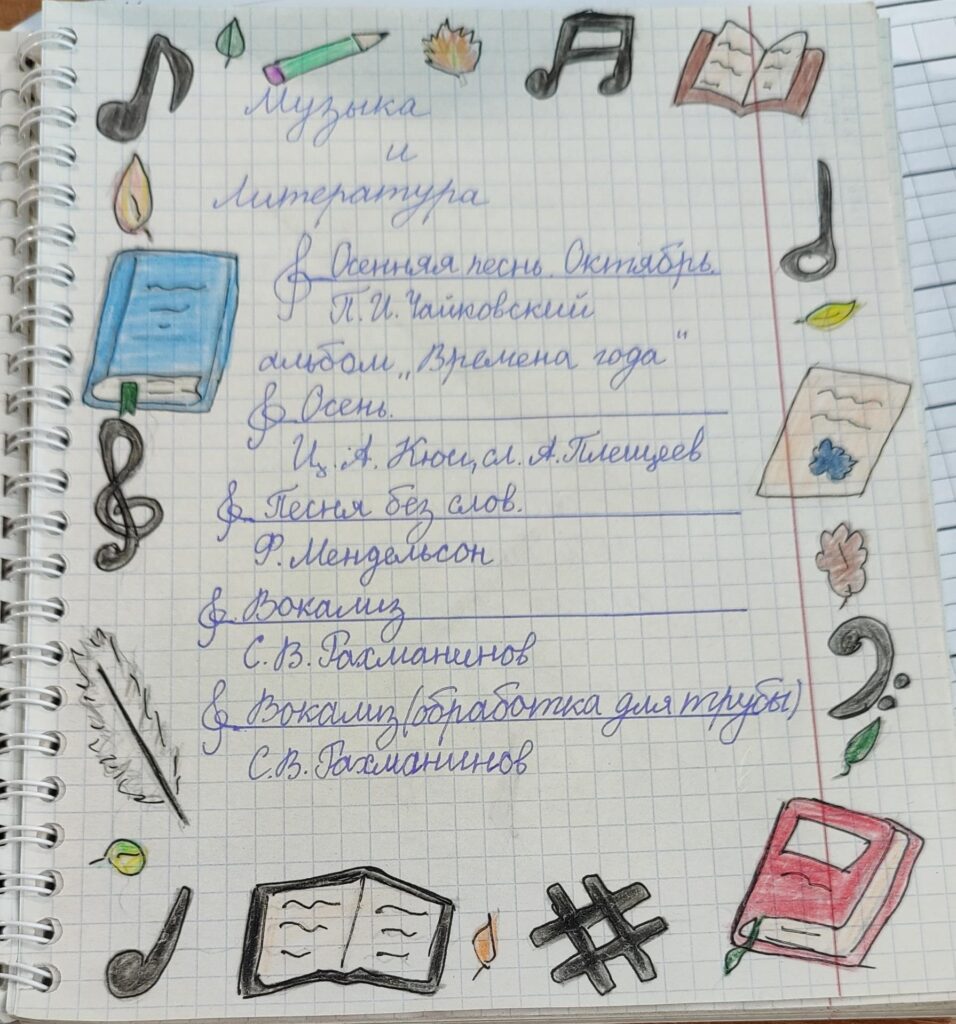 Музыка
и
Литература
Осенняя песнь. Октябрь.
П. И. Чайковский
альбом „Времена года"
Осень.
Ц. А. Кюи, сл. А. Плещеев
Песня без слов.
Ф. Мендельсон
Вокализ
С. В. Рахманинов
Вокализ (обработка для трубы)
С. В. Рахманинов